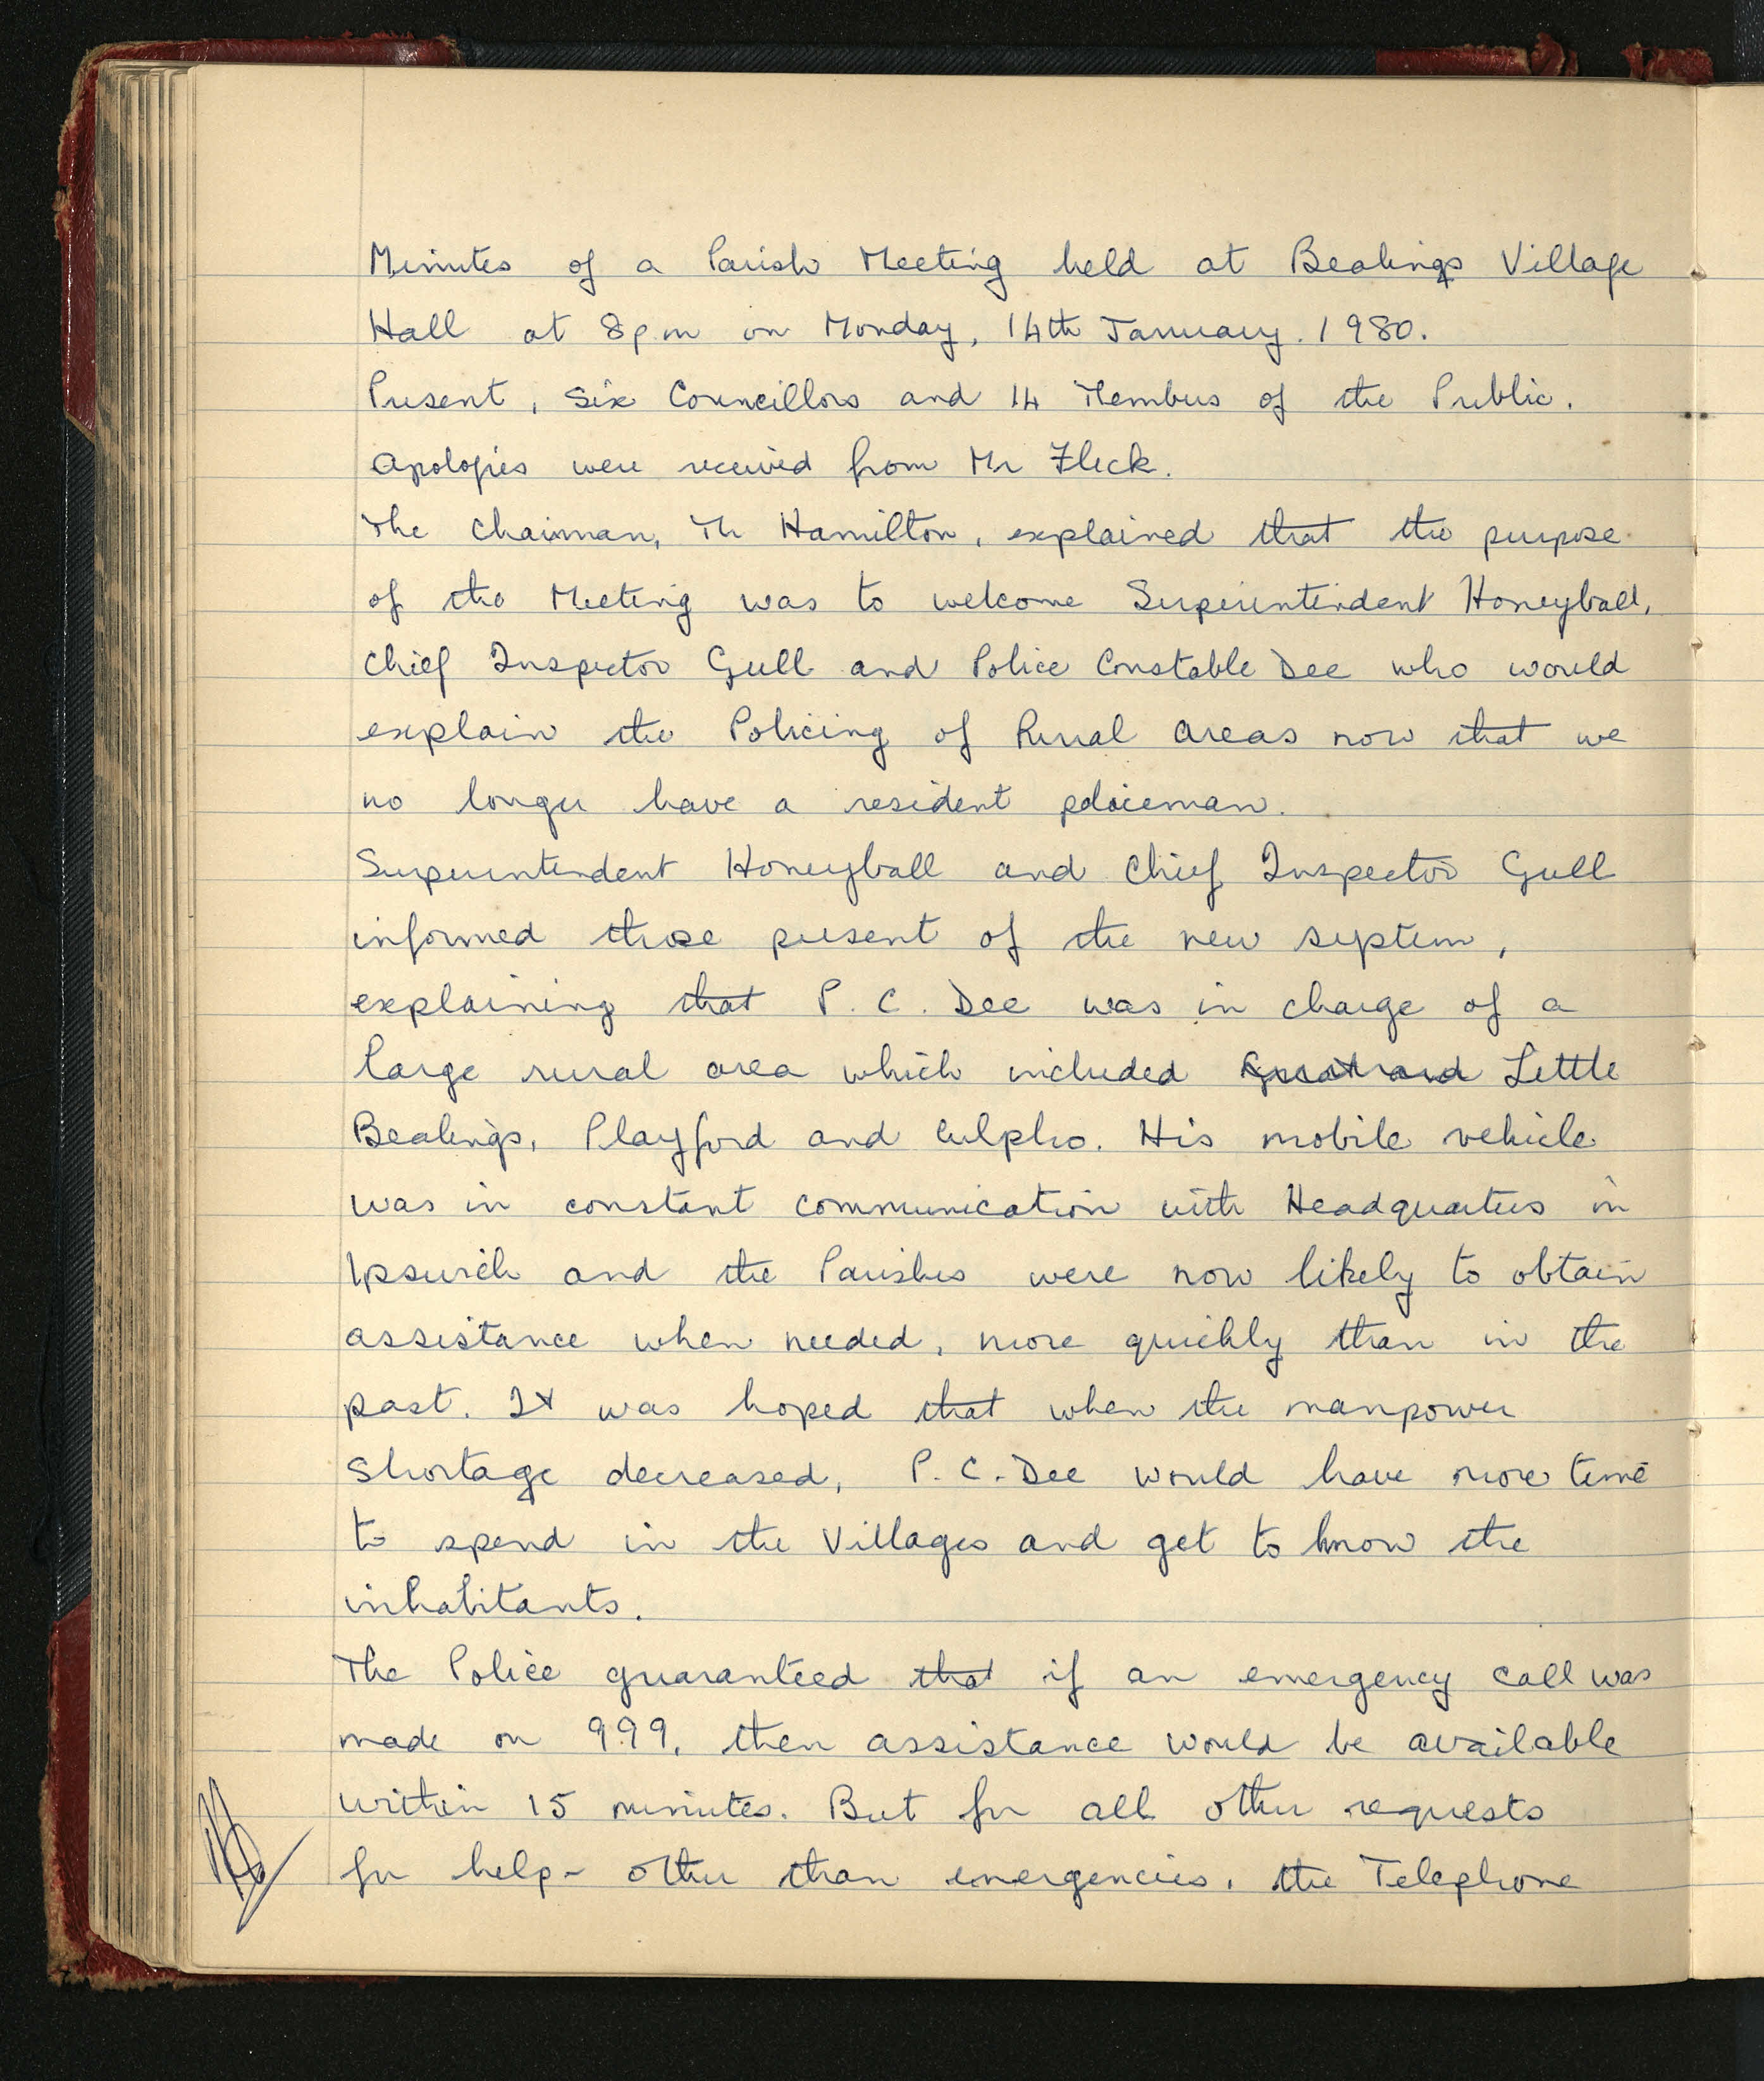 Minutes of a Parish Meeting held at Bealings Village
Hall at 8pm on Monday, 14th January. 1980.
Present, Six Councillors and 14 Members of the Public.
Apologies were received from Mr Fleck.
The Chairman, Mr Hamilton, explained that the purpose
of the Meeting was to welcome Superintendent Honeyball,
Chief Inspector Gull and Police Constable Dee who would
explain the Policing of Rural Areas now that we
no longer have a resident policeman.
Superintendent Honeyball and Chief Inspector Gull
informed those present of the new system,
explaining that P.C. Dee was in charge of a
large rural area which included Great and Little
Bealings, Playford and Culpho. His mobile vehicle
was in constant communication with Headquarters in
Ipswich and the Parishes were now likely to obtain
assistance when needed, more quickly than in the
past. It was hoped that when the manpower
shortage decreased, P.C. Dee would have more time
to spend in the Villages and get to know the
inhabitants.
The Police guaranteed that if an emergency call was
made on 999, then assistance would be available
within 15 minutes. But for all other requests
for help - other than emergencies, the Telephone